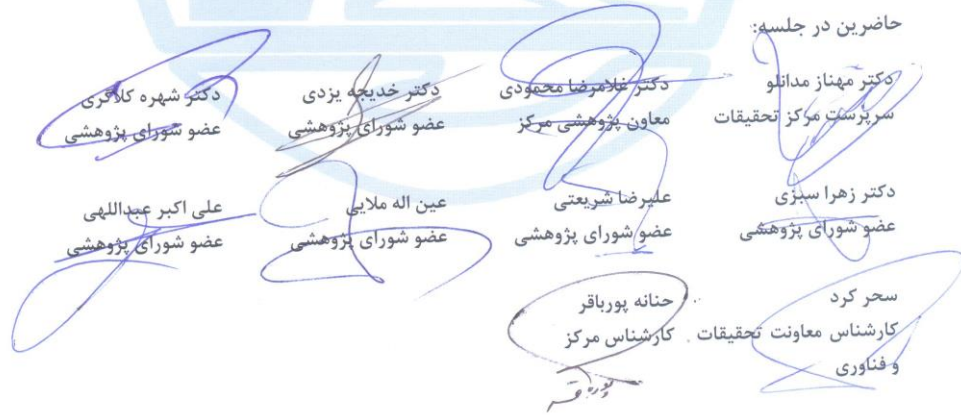 حاضرین در جلسه:
دکتر مهناز مدانلو
سرپرست مرکز تحقیقات
دکتر غلامرضا محمودی
معاون پژوهشی مرکز
دکتر خدیجه یزدی
عضو شورای پژوهشی
دکتر شهره کلاگری
عضو شورای پژوهشی
دکتر زهرا سبزی
عضو شورای پژوهشی
علیرضا شریعتی
عضو شورای پژوهشی
عین اله ملایی
عضو شورای پژوهشی
علی اکبر عبداللهی
عضو شورای پژوهشی
سحر کرد
کارشناس معاونت تحقیقات
و فناوری
حنانه پورباقر
کارشناس مرکز